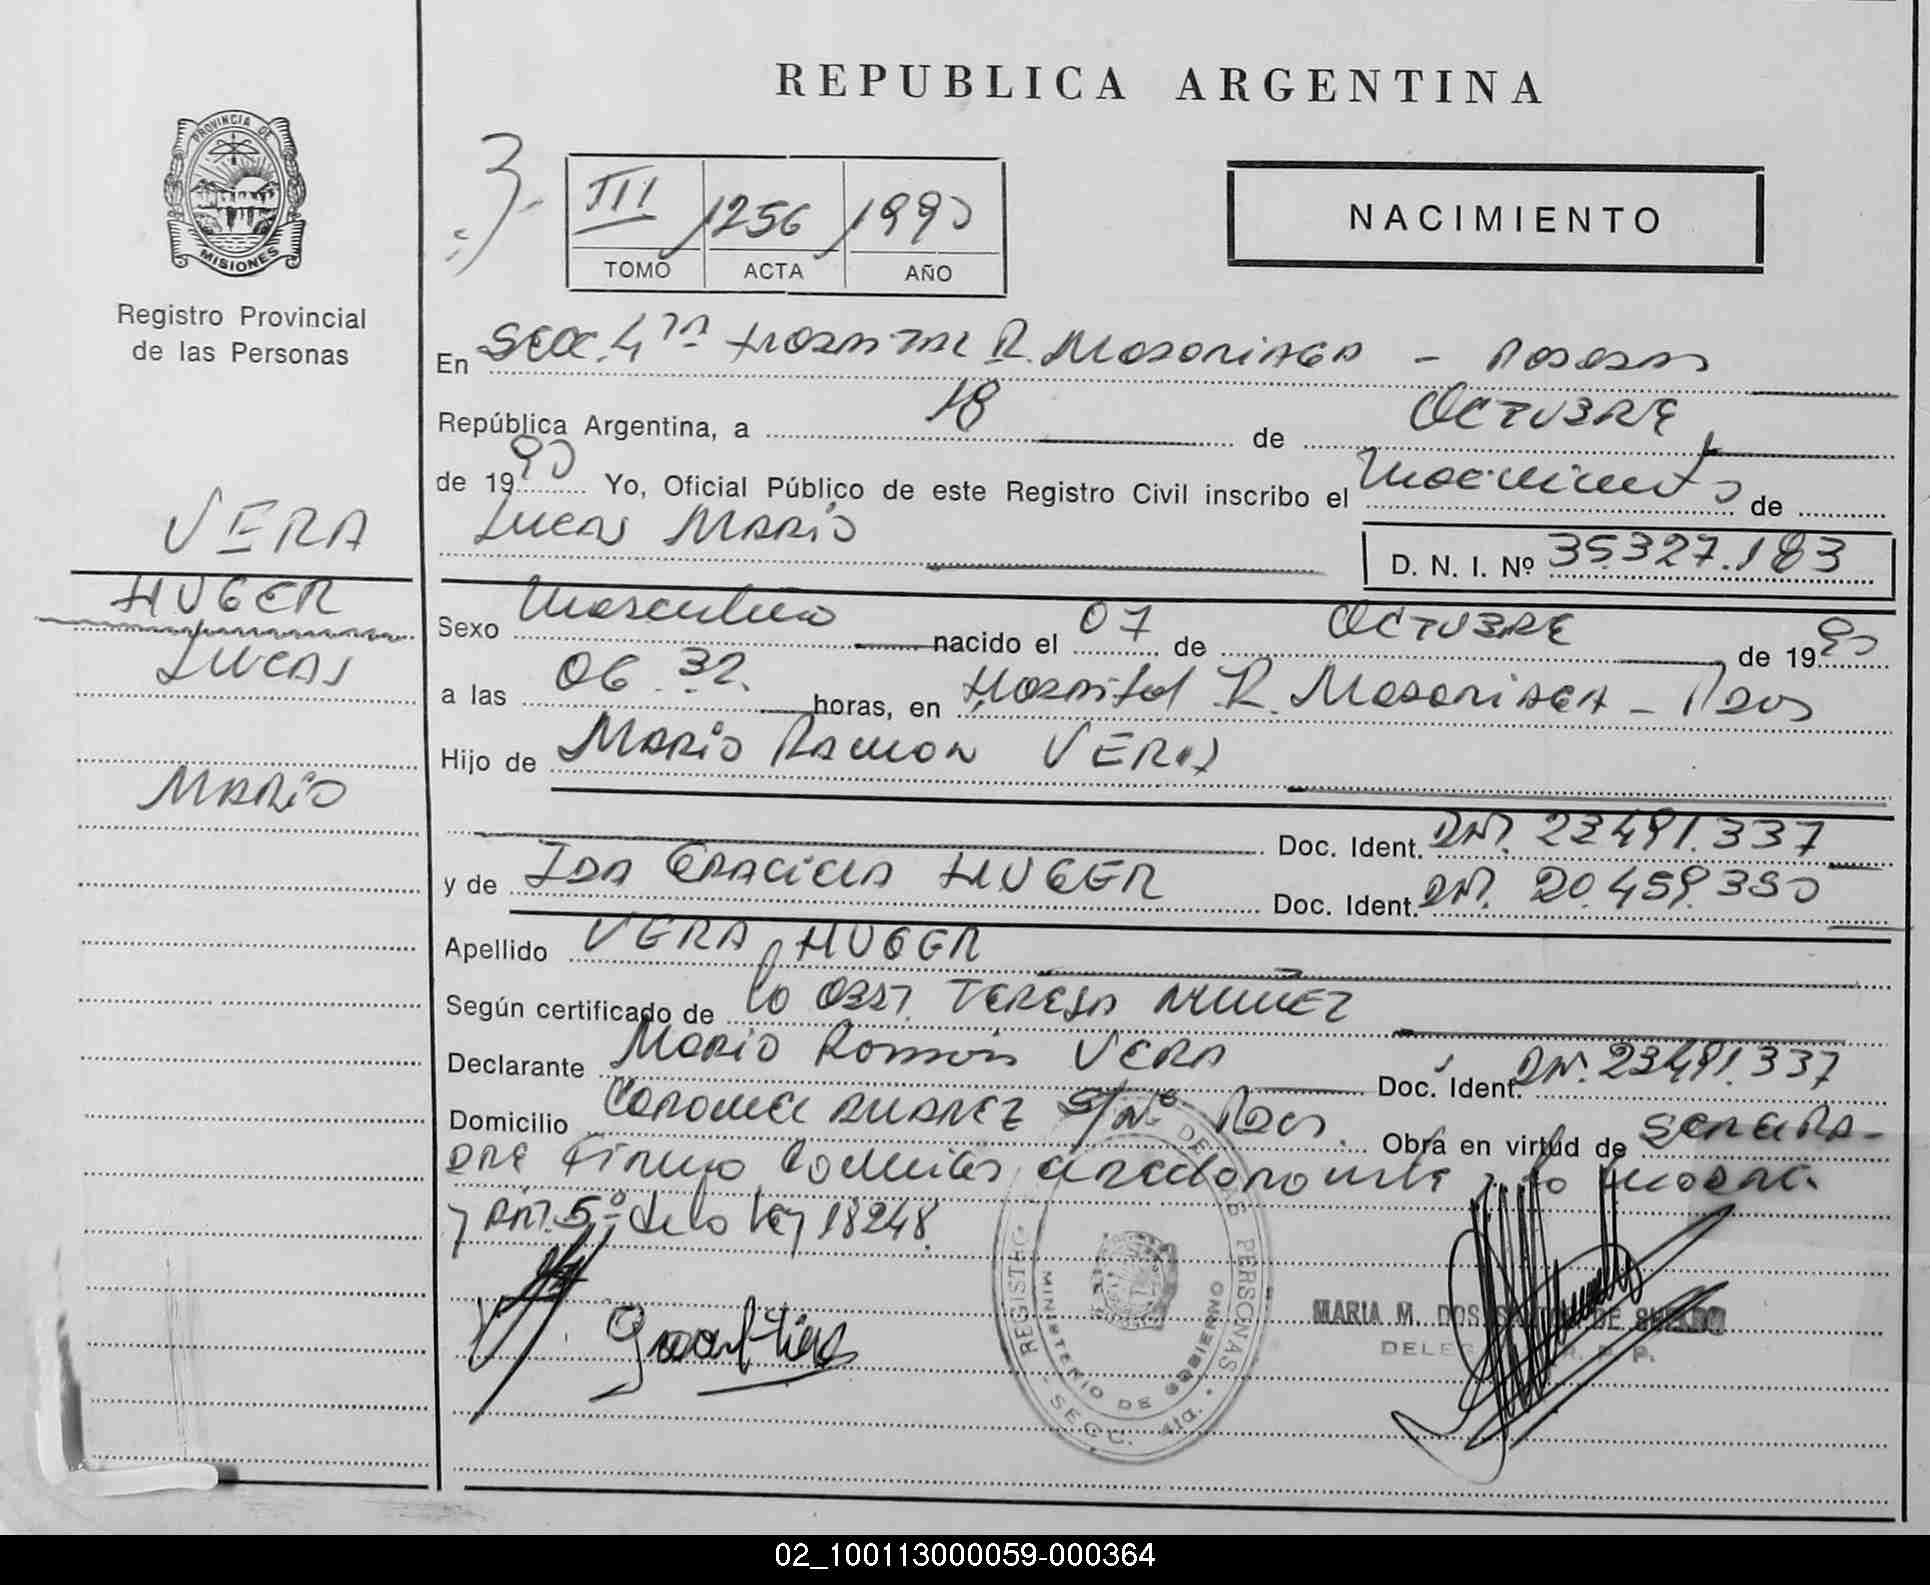 REPUBLICA ARGENTINA
PROVINCIA DE
MISIONES
Registro Provincial
de las Personas
III 1256 1990
TOMO ACTA AÑO
NACIMIENTO
En Secc. 4ta Hospital R. Madariaga - Posadas
República Argentina, a 18 de OCTUBRE
de 1990 Yo, Oficial Público de este Registro Civil inscribo el nacimiento de
Lucas Mario
D. N. I. Nº 35.327.183
VERA
HUGER
LUCAS
MARIO
Sexo Masculino nacido el 07 de OCTUBRE de 1990
a las 06.32. horas, en Hospital R. Madariaga - Pdas
Hijo de Mario Ramon VERA
Doc. Ident. DNI. 23.491.337
y de IDA GRACIELA HUGER Doc. Ident. DNI. 20.459.350
Apellido VERA HUGER
Según certificado de la Obst. TERESA NUÑEZ
Declarante Mario Ramón VERA Doc. Ident. DNI. 23.491.337
Domicilio CORONEL SUAREZ S/Nº Pdas. Obra en virtud de ser
padre firman la madre
y Art. 5º de la ley 18248.
REGISTRO DE LAS PERSONAS
MINISTERIO DE GOBIERNO
SECC. 4ta.
MARIA M. DOS DE
DELEG R. P.
02_100113000059-000364